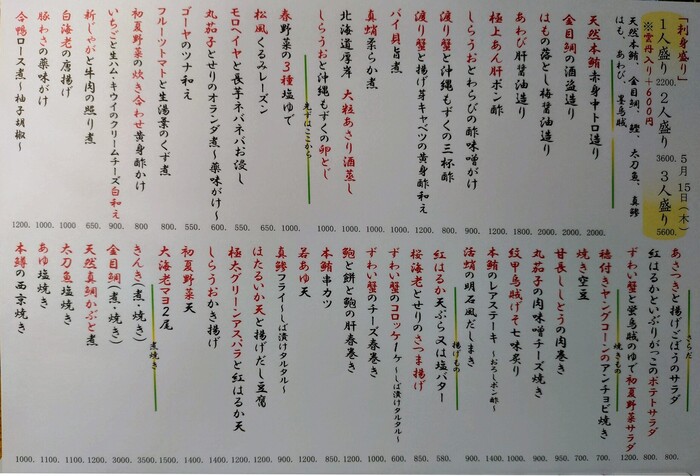 「刺身盛り」
1人盛り 2200. 2人盛り 3600. 3人盛り 5600.
※雲丹入り+600円
5月15日(木)
天然本鮪、金目鯛、鰹、太刀魚、真鯵
はも、あわび、墨烏賊
天然本鮪赤身中トロ造り 2000.
金目鯛の酒盗造り 2000.
はもの落とし梅醤油造り 2000.
あわび肝醤油造り 1800.
極上あん肝ポン酢 1200.
しらうおとわらびの酢味噌がけ 900.
渡り蟹と沖縄もずくの三杯酢 1200.
渡り蟹と揚げ芽キャベツの黄身酢和え 1200.
バイ貝旨煮 1000.
真蛸柔らか煮 1000.
北海道厚岸 大粒あさり酒蒸し 1000.
しらうおと沖縄もずくの卵とじ 1000.
先ずはここから
春野菜の3種塩ゆで 1000.
松風くるみレーズン 400.
モロヘイヤと長芋ネバネバお浸し 600.
丸茄子とせりのオランダ煮〜薬味がけ〜 600.
ゴーヤのツナ和え 550.
フルーツトマトと生湯葉のくず煮 800.
初夏野菜の炊き合わせ黄身酢かけ 800
いちごと生ハム・キウイのクリームチーズ白和え 900.
新じゃがと牛肉の照り煮 650.
白海老の唐揚げ 1000
豚わさの薬味がけ 1000.
合鴨ロース煮〜柚子胡椒〜 1200.
さらだ
あさつきと揚げごぼうのサラダ 800.
紅はるかといぶりがっこのポテトサラダ 800.
ずわい蟹と蛍烏賊のゆで初夏野菜サラダ 1200.
焼きもの
穂付きヤングコーンのアンチョビ焼き 700.
焼き空豆 700.
甘長ししとうの肉巻き 950.
丸茄子の肉味噌チーズ焼き 900.
紋甲烏賊げそ七味炙り 900.
本鮪のレアステーキ〜おろしポン酢〜 1400.
活蛸の明石風だしまき 900.
揚げもの
紅はるか天ぷら又は塩バター 580.
桜海老とせりのさんま揚げ 850.
ずわい蟹のコロッケ1ケ〜しば漬けタルタル〜 600.
ずわい蟹のチーズ春巻き 1000.
鮑と餅と鮑の肝春巻き 1200.
本鮪串カツ 850.
若あゆ天 1200.
真鯵フライ〜しば漬けタルタル〜 900.
ほたるいか天と揚げだし豆腐 1200.
極太グリーンアスパラと紅はるか天 1400.
しらうおかき揚げ 1400.
初夏野菜天 1200.
大海老マヨ2尾 1500.
煮焼き
きんき(煮・焼き) 3500.
金目鯛(煮・焼き) 3000.
天然真鯛かぶと煮 1200.
太刀魚塩焼き 1100.
あゆ塩焼き 1100.
本鱒の西京焼き 1000.